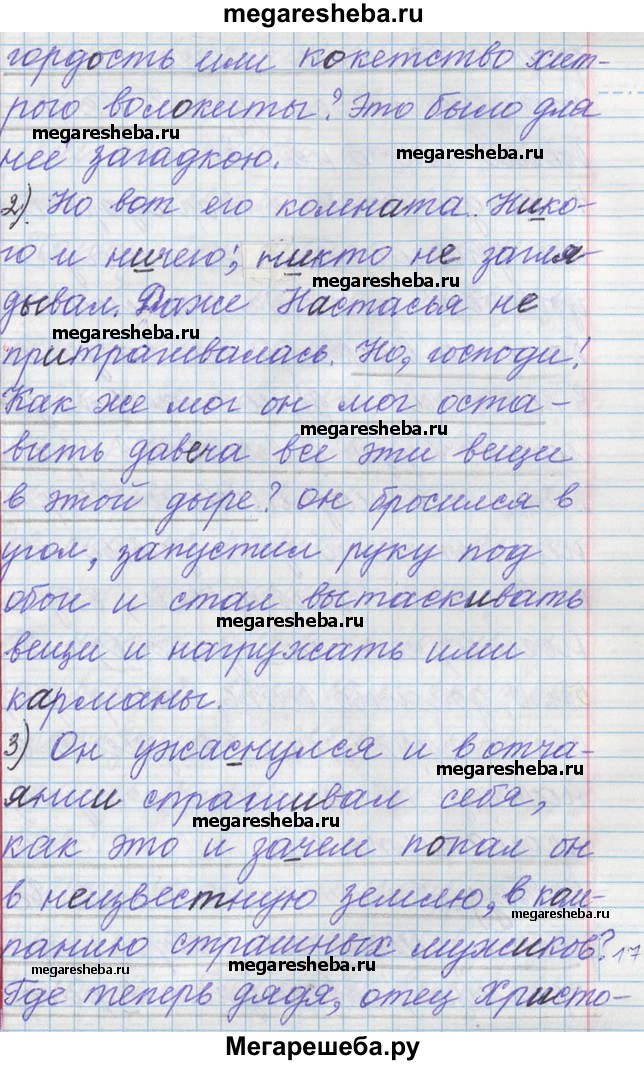 megaresheba.ru
гордость или кокетство хит-
рого волокиты? Это было для
megaresheba.ru
megaresheba.ru
неё загадкою.
2). Но вот его комната. Нико-
megaresheba.ru
го и ничего; никто не загля-
megaresheba.ru
дывал. Даже Настасья не
megaresheba.ru
притрагивалась. Но, господи!
Как же мог он мог оста-
megaresheba.ru
вить давеча все эти вещи
в этой дыре? Он бросился в
угол, запустил руку под
обои и стал вытаскивать
megaresheba.ru
вещи и нагружать ими
карманы.
3) Он ужаснулся и в отча-
megaresheba.ru
янии спрашивал себя,
megaresheba.ru
как это и зачем попал он
в неизвестную землю, в ком-
megaresheba.ru
панию страшных мужиков? 17
megaresheba.ru
megaresheba.ru
Где теперь дядя, отец Христо-
Мегарешеба.ру